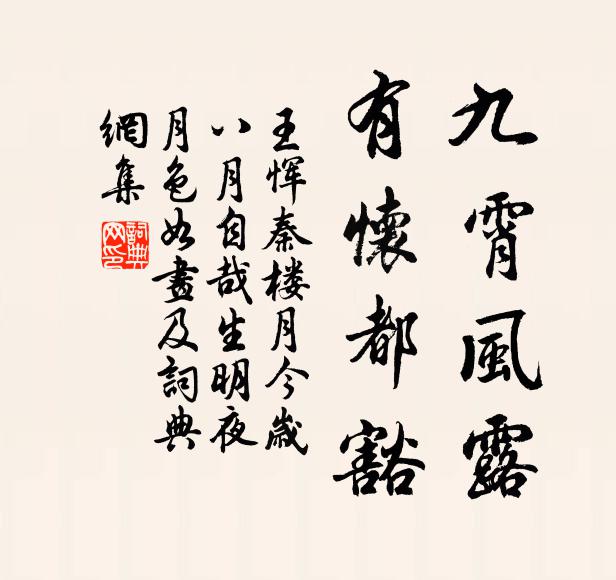 九霄風露
有懷都豁
王惲秦楼月今歲
八月自哉生明夜
月色如晝及詞典
網集
詞典
网印